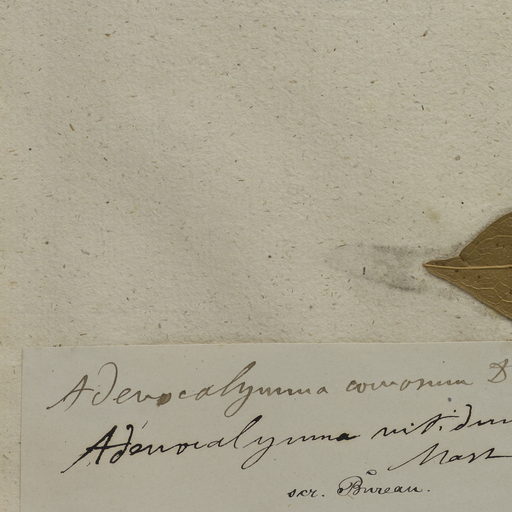 Adenocalymna comosum D
Adenocalymna nitidum
Mart
scr. Bureau.